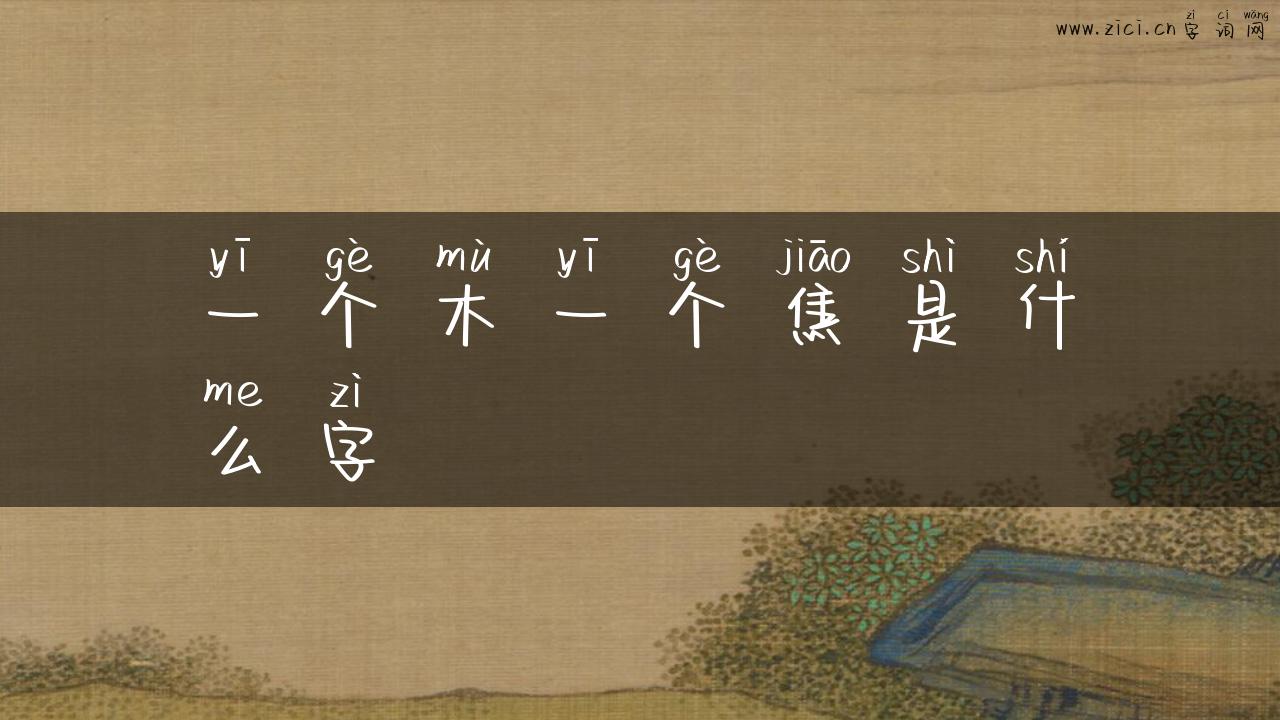 zì cí wǎng
www.zici.cn 字词网
yī gè mù yī gè jiāo shì shí
一个木一个焦是什
me zì
么字